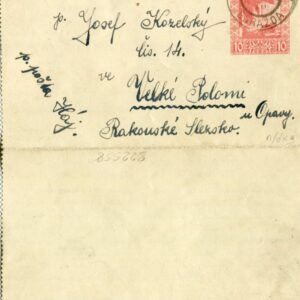 p. Josef Kozelský
čís. 14.
ve
Velké Polomi
u Opavy.
Rakouské Slezsko.
p. pošta
Háj
10 10